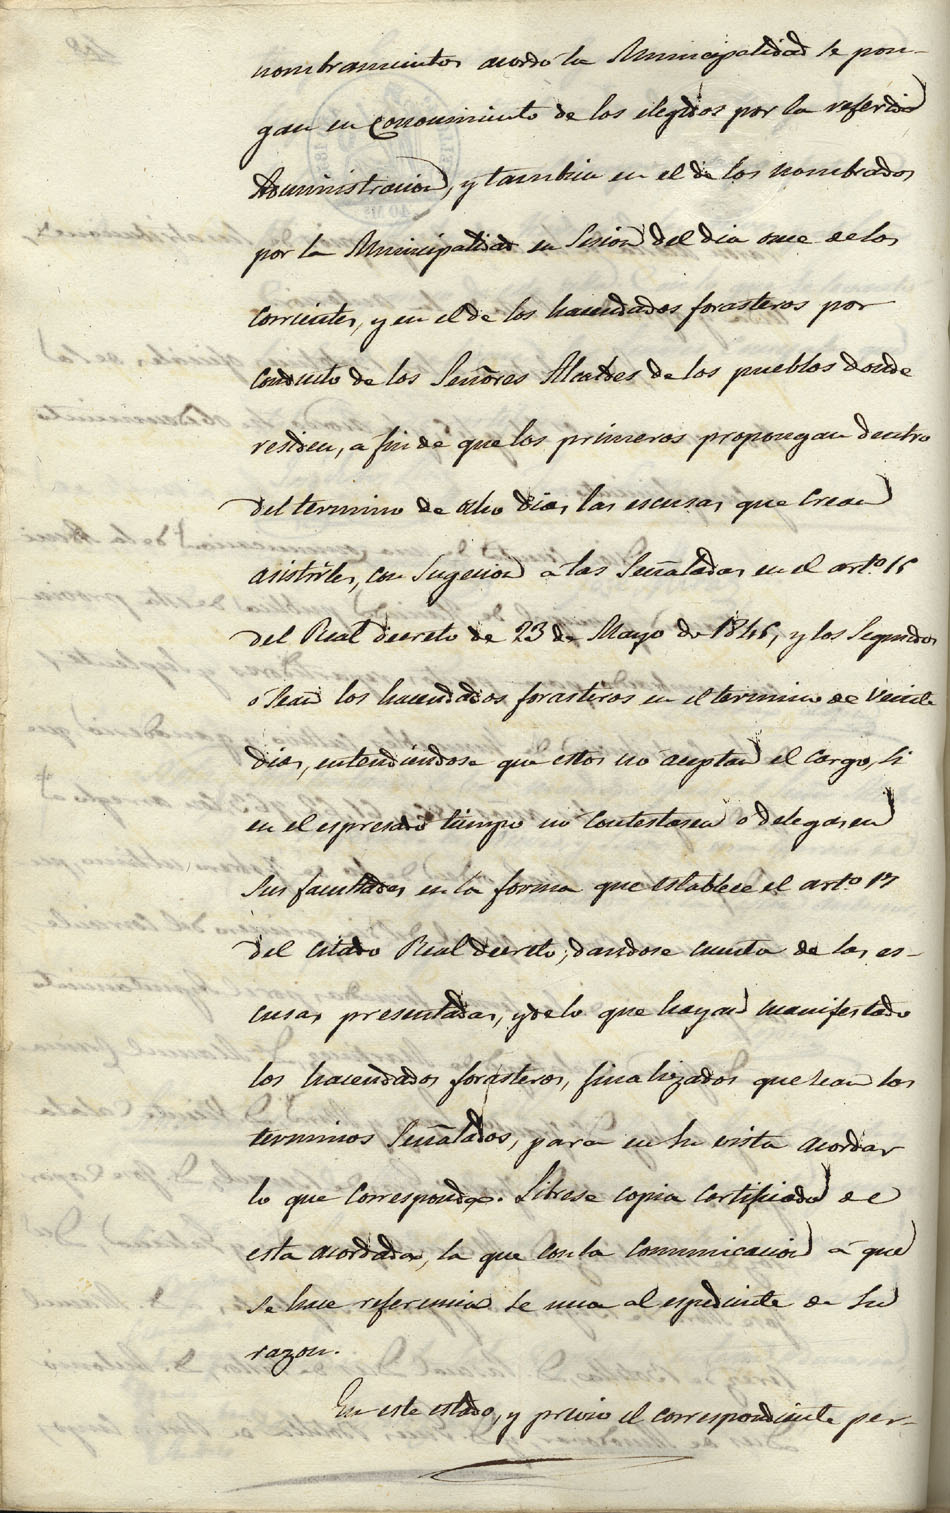 nombramientos acordó la Municipalidad se pon-
gan en conocimiento de los elegidos por la referida
Administracion, y tambien en el de los nombrados
por la Municipalidad en Sesion del dia once de los
corrientes, y en el de los hacendados forasteros por
conducto de los Señores Alcaldes de los pueblos donde
residen, a fin de que los primeros propongan dentro
del termino de ocho dias, las escusas que crean
asistirles, con sugecion á las Señaladas en el arto. 16
del Real decreto de 23 de Mayo de 1845, y los Segundos
ó sean los hacendados forasteros en el termino de veinte
dias, entendiendose que estos no aceptan el cargo, si
en el espresado tiempo no contestasen o delegasen
sus facultades en la forma que establece el arto. 17
del citado Real decreto; dandose cuenta de las es-
cusas presentadas, y de lo que hayan manifestado
los hacendados forasteros, finalizados que sean los
terminos Señalados, para en su vista acordar
lo que corresponda. Librese copia certificada de
esta acordada, la que con la comunicacion á que
se hace referencia se una al espediente de su
razon.
En este estado, y previo el correspondiente per-